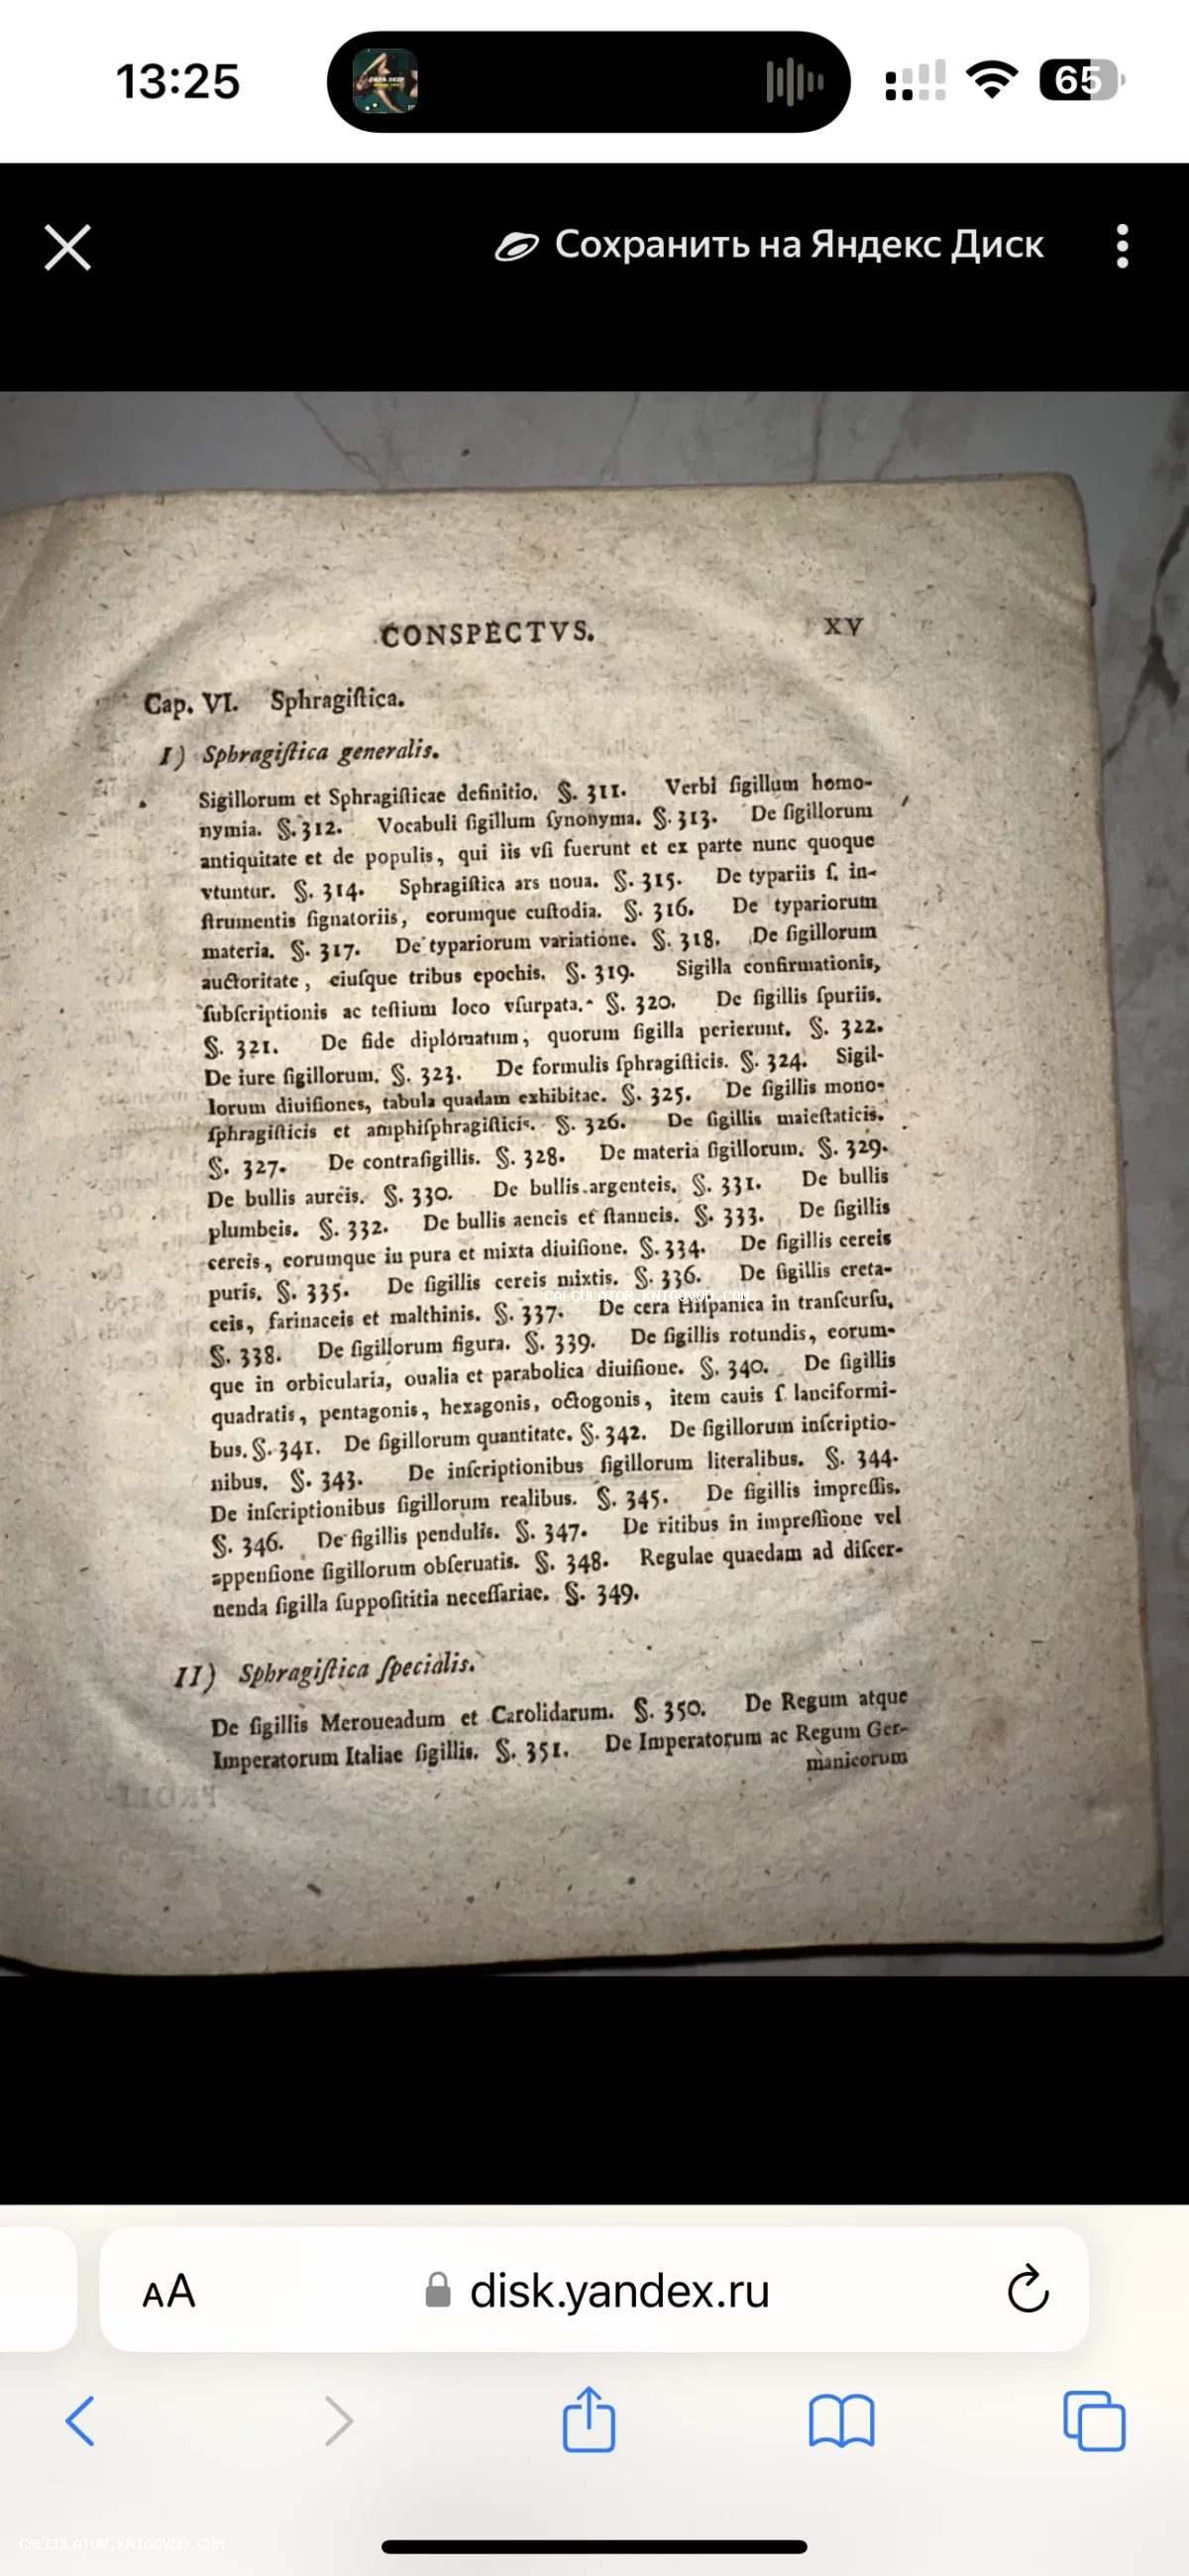 13:25
65
Сохранить на Яндекс Диск
CONSPECTVS. XV
Cap. VI. Sphragiſtica.
I) Sphragiſtica generalis.
Sigillorum et Sphragiſticae definitio. §. 311. Verbi ſigillum homo-
nymia. §. 312. Vocabuli ſigillum ſynonyma. §. 313. De ſigillorum
antiquitate et de populis, qui iis vſi fuerunt et ex parte nunc quoque
vtuntur. §. 314. Sphragiſtica ars noua. §. 315. De typariis ſ. in-
ſtrumentis ſignatoriis, eorumque cuſtodia. §. 316. De typariorum
materia. §. 317. De typariorum variatione. §. 318. De ſigillorum
auctoritate, eiuſque tribus epochis. §. 319. Sigilla confirmationis,
ſubſcriptionis ac teſtium loco vſurpata. §. 320. De ſigillis ſpuriis.
§. 321. De fide diplomatum, quorum ſigilla perierunt. §. 322.
De iure ſigillorum. §. 323. De formulis ſphragiſticis. §. 324. Sigil-
lorum diuiſiones, tabula quadam exhibitae. §. 325. De ſigillis mono-
ſphragiſticis et amphiſphragiſticis. §. 326. De ſigillis maieſtaticis.
§. 327. De contraſigillis. §. 328. De materia ſigillorum. §. 329.
De bullis aureis. §. 330. De bullis argenteis. §. 331. De bullis
plumbeis. §. 332. De bullis aeneis et ſtanneis. §. 333. De ſigillis
cereis, eorumque in pura et mixta diuiſione. §. 334. De ſigillis cereis
puris. §. 335. De ſigillis cereis mixtis. §. 336. De ſigillis creta-
CALCULATOR.KNIGOVOD.COM
ceis, farinaceis et malthinis. §. 337. De cera Hiſpanica in tranſcurſu.
§. 338. De ſigillorum figura. §. 339. De ſigillis rotundis, eorum-
que in orbicularia, oualia et parabolica diuiſione. §. 340. De ſigillis
quadratis, pentagonis, hexagonis, octogonis, item cauis ſ. lanciformi-
bus. §. 341. De ſigillorum quantitate. §. 342. De ſigillorum inſcriptio-
nibus. §. 343. De inſcriptionibus ſigillorum literalibus. §. 344.
De inſcriptionibus ſigillorum realibus. §. 345. De ſigillis impreſſis.
§. 346. De ſigillis pendulis. §. 347. De ritibus in impreſſione vel
appenſione ſigillorum obſeruatis. §. 348. Regulae quaedam ad diſcer-
nenda ſigilla ſuppoſititia neceſſariae. §. 349.
II) Sphragiſtica ſpecialis.
De ſigillis Meroueadum et Carolidarum. §. 350. De Regum atque
Imperatorum Italiae ſigillis. §. 351. De Imperatorum ac Regum Ger-
manicorum
AA disk.yandex.ru
CALCULATOR.KNIGOVOD.COM